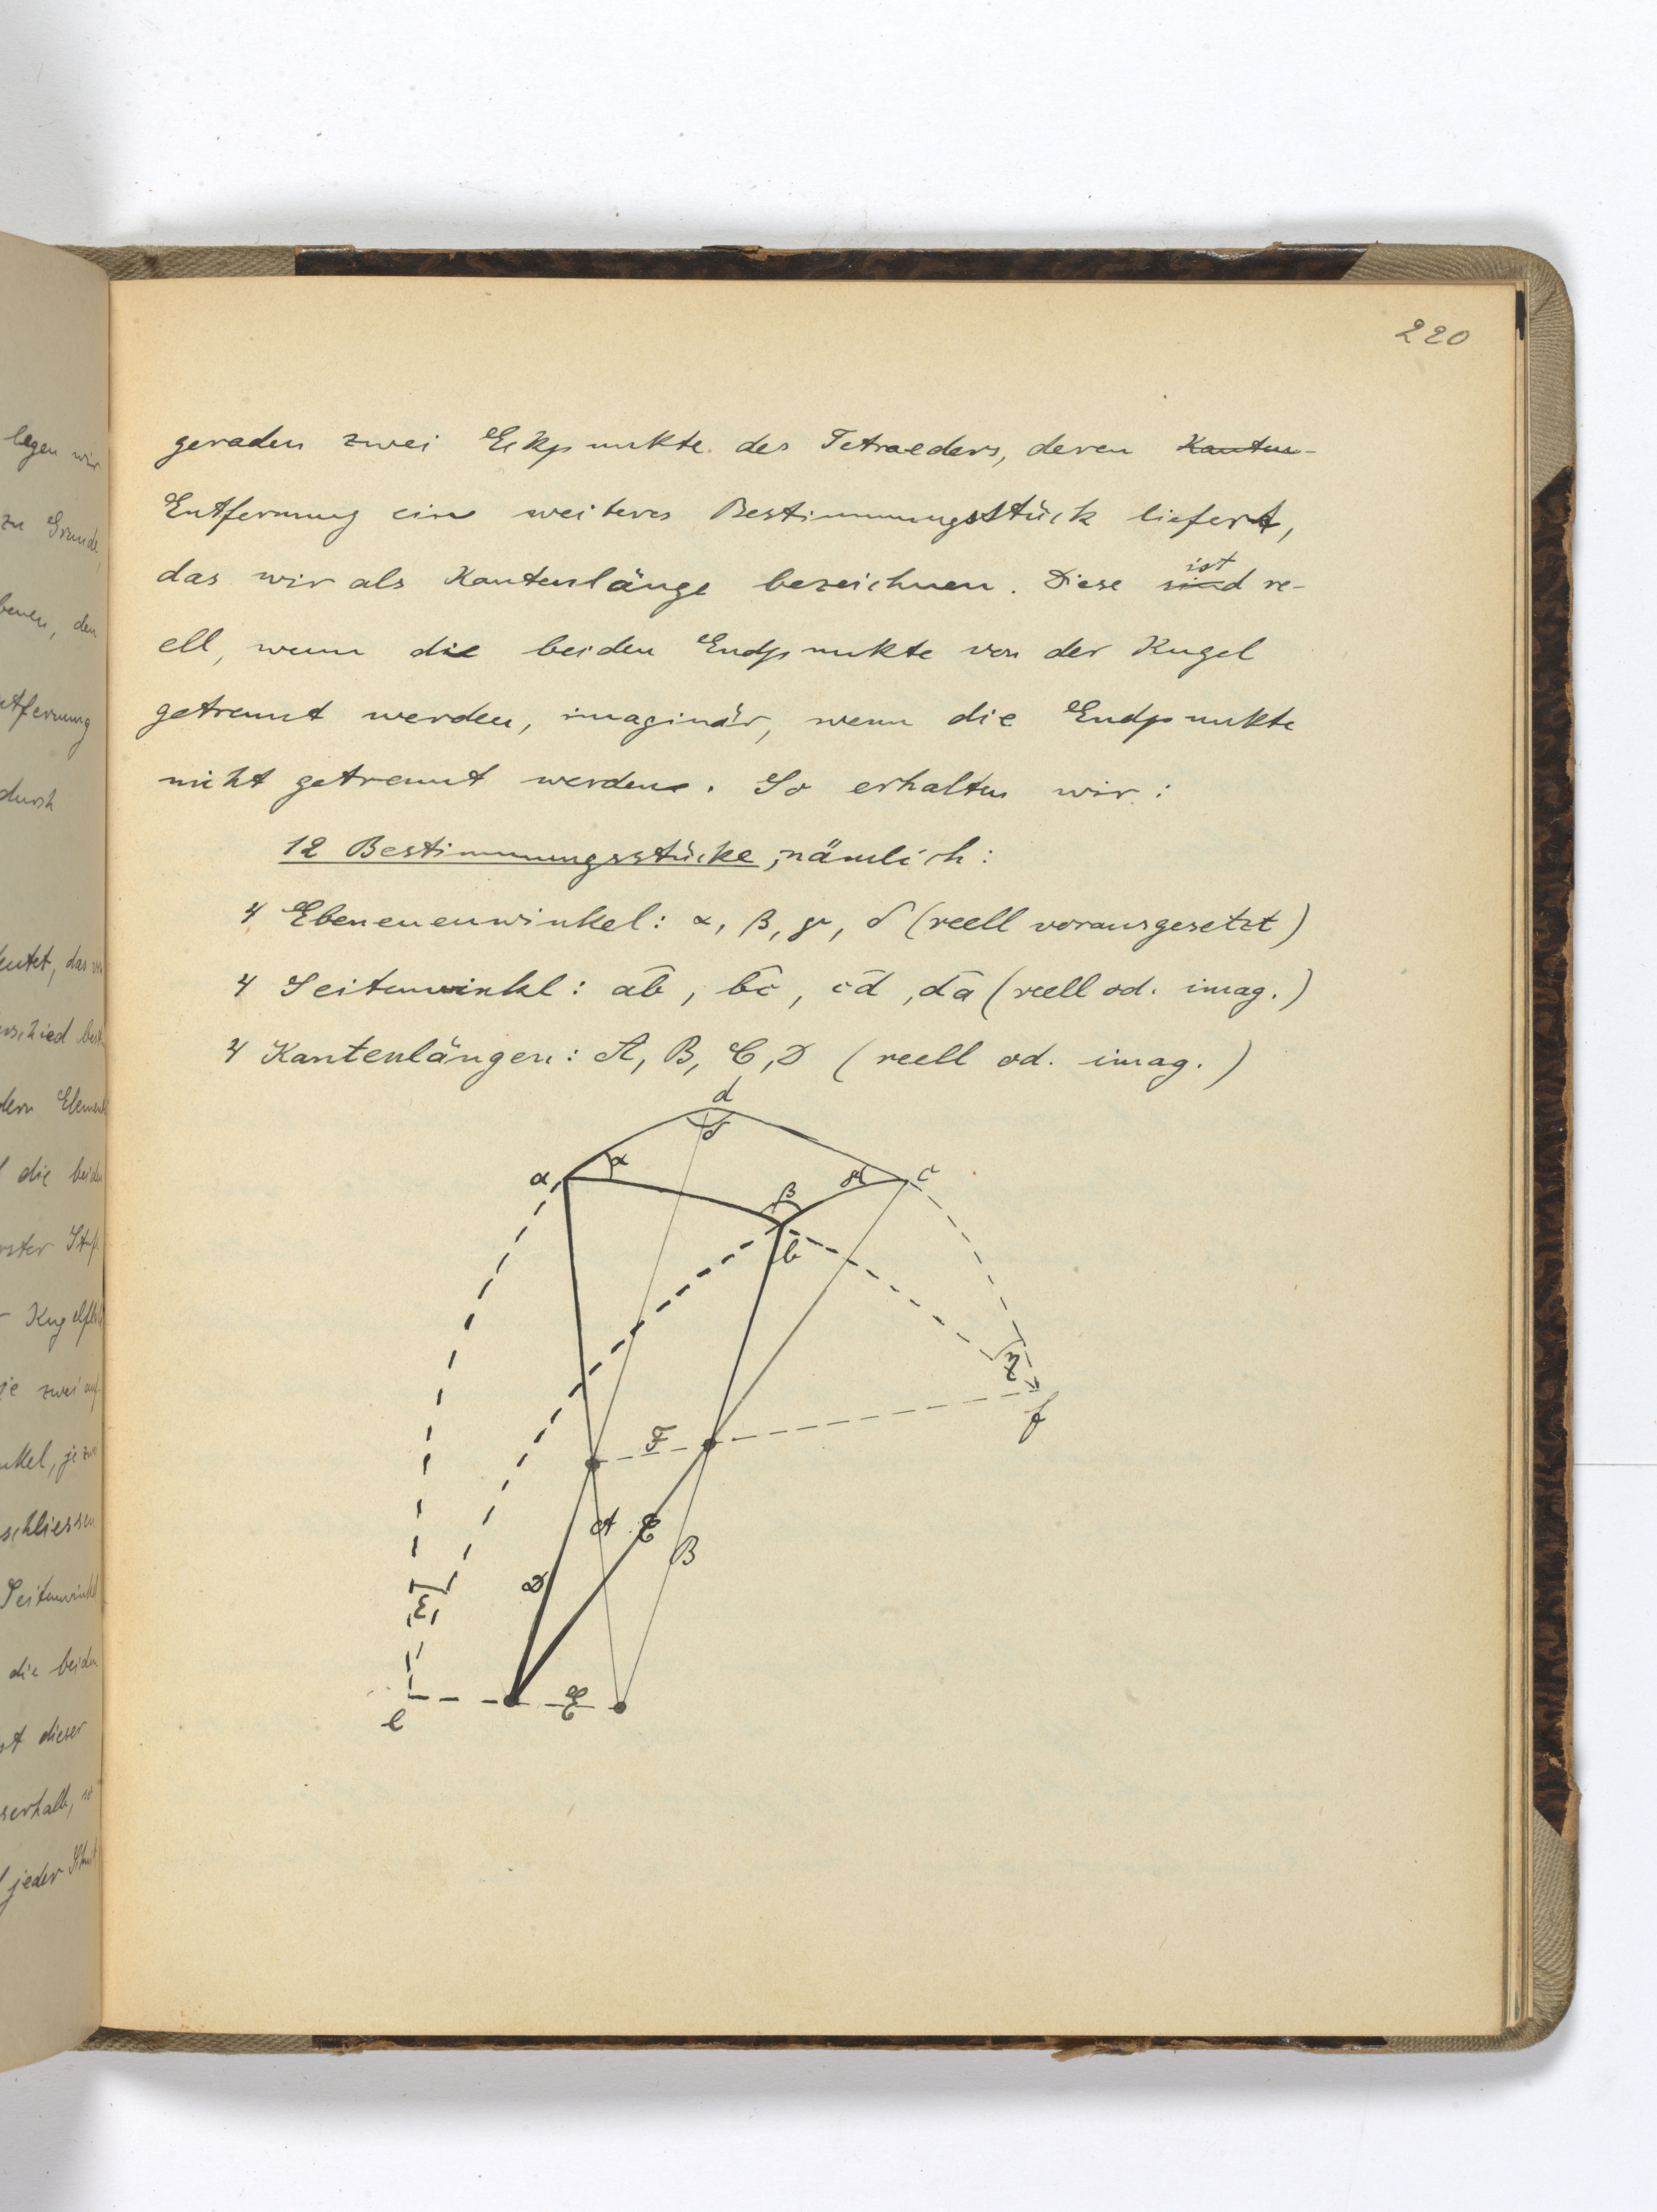 220
geraden zwei Eckpunkte des Tetraeders, deren Kanten-
Entfernung ein weiteres Bestimmungsstück liefert,
das wir als Kantenlänge bezeichnen. Diese sind ist re-
ell, wenn die beiden Endpunkte von der Kugel
getrennt werden, imaginär, wenn die Endpunkte
nicht getrennt werden. So erhalten wir:
12 Bestimmungsstücke, nämlich:
4 Ebenenwinkel: α, β, γ, δ (reell vorausgesetzt)
4 Seitenwinkl: a͞b, b͞c, c͞d, d͞a (reell od. imag.)
4 Kantenlängen: A, B, C, D (reell od. imag.)
d
δ
a
α
β
γ
c
b
ζ
f
F
A
C
B
D
ε
E
e
legen wir
zu Grunde,
den
durch
die beiden
Kugelfl
je zwei auf
schliessen
Seitenwinkel
die beiden
dieser
jeder